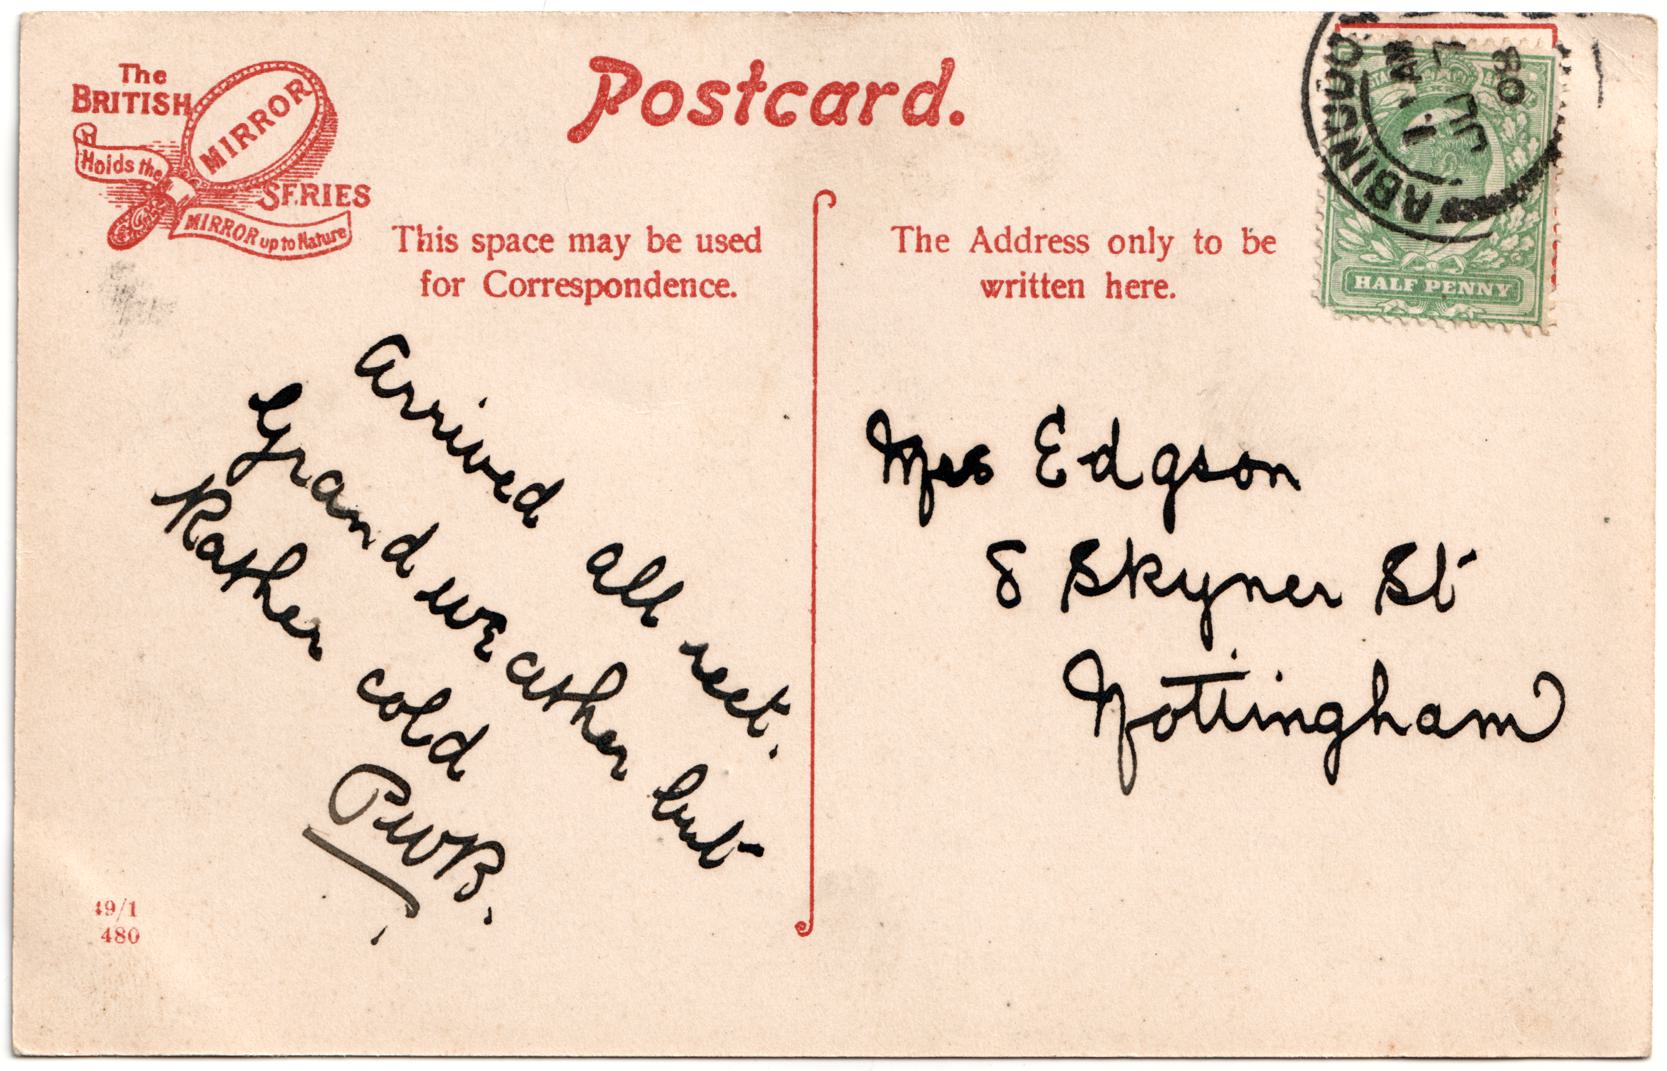 The
BRITISH
MIRROR
Holds the
SERIES
MIRROR up to Nature
Postcard.
This space may be used
for Correspondence.
The Address only to be
written here.
ABINGDON
1 AM
JU 7
08
HALF PENNY
Arrived all rect.
Grand weather but
Rather cold
PWB.
Mrs Edgson
8 Skyner St
Nottingham
49/1
480